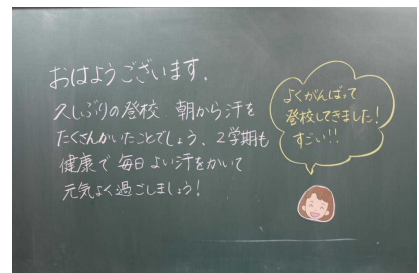 おはようございます。
久しぶりの登校 朝から汗を
たくさんかいたことでしょう、2学期も
健康で毎日よい汗をかいて
元気よく過ごしましょう!
よくがんばって
登校してきました!
すごい!!